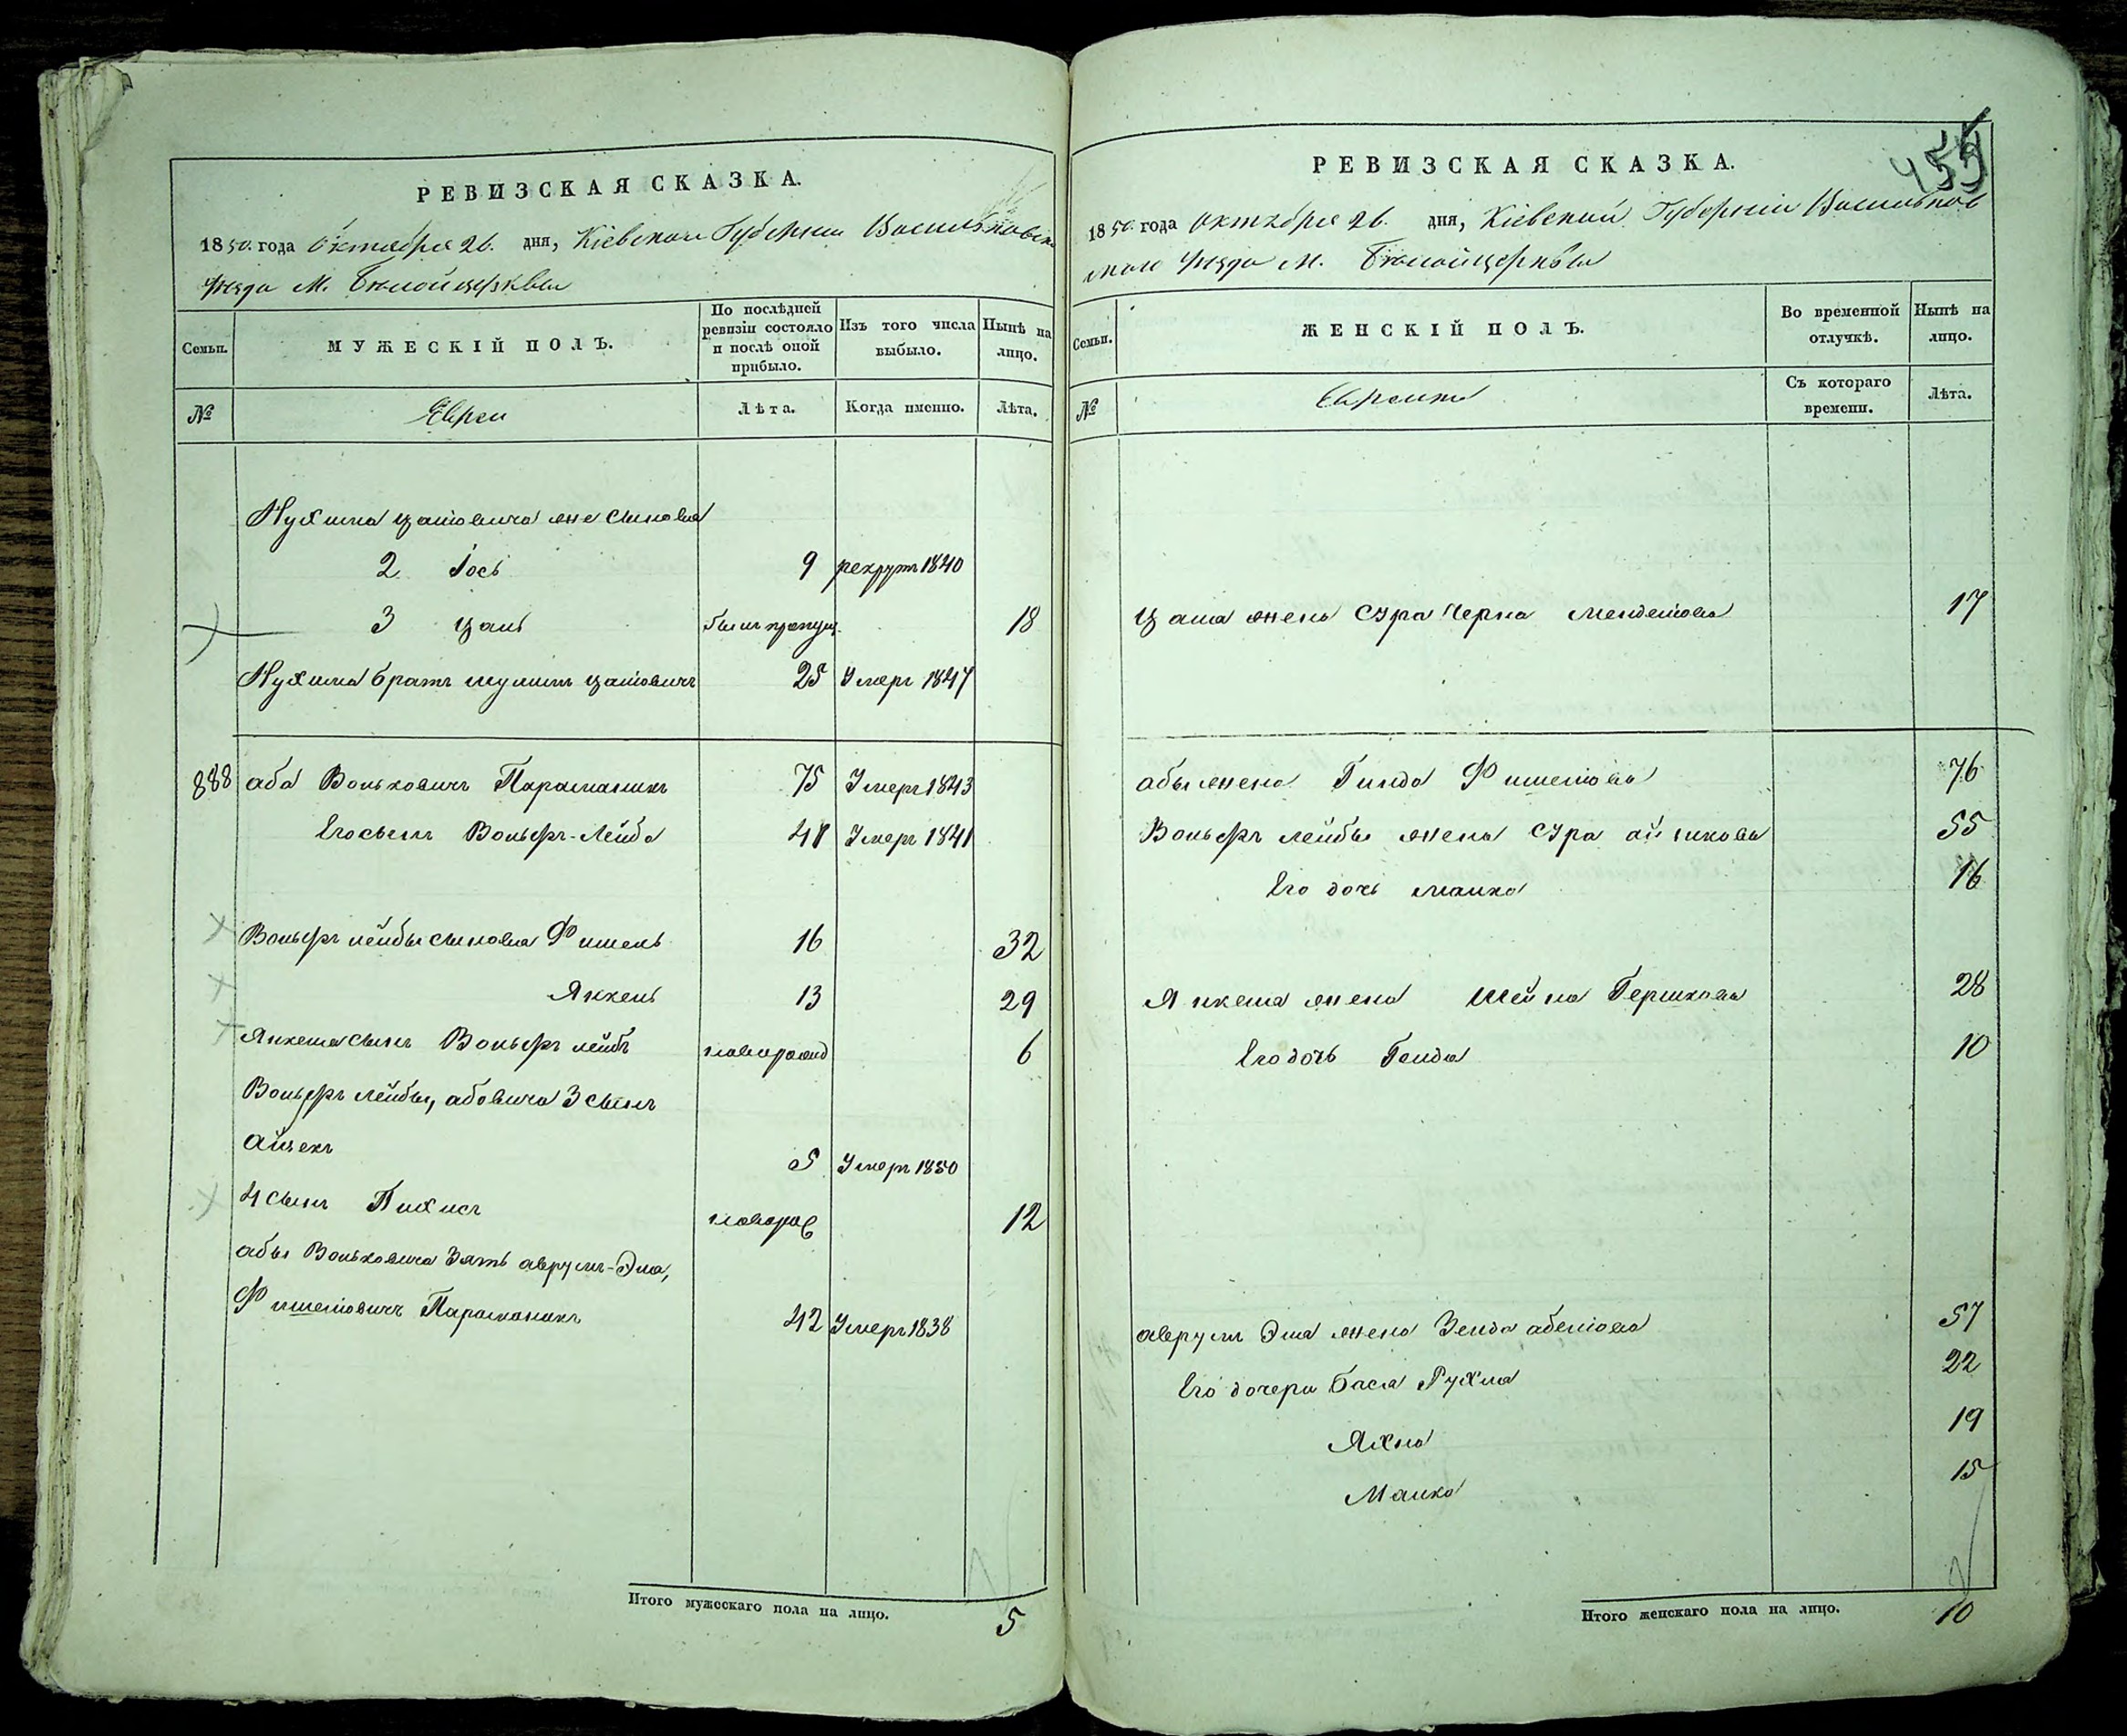 РЕВИЗСКАЯ СКАЗКА.
1850 года Октября 26. дня, Кіевской Губерніи Васильковска
Уѣзда М. Бѣлойцеркви
Семьи.
МУЖЕСКІЙ ПОЛЪ.
По послѣдней ревизіи состояло и послѣ оной прибыло.
Изъ того числа выбыло.
Нынѣ на лицо.
№
Евреи
Лѣта.
Когда именно.
Лѣта.
Нухима сыновья
2 Іось 9 рекрутъ 1840
3 Цаль былъ пропущ. 18
Нухима братъ 25 Умеръ 1847
888 аба Вольковичъ Параманикъ 75 Умеръ 1843
Его сынъ Вольфъ-Лейба 41 Умеръ 1841
Вольфъ лейбы сыновья Фишель 16 32
Янкель 13 29
Янкеля сынъ Вольфъ лейбъ новорожд 6
Вольфъ лейбы, абовича 3 сынъ
айзекъ 5 Умеръ 1850
4 сынъ Пихисъ новорож 12
абы Вольковича Зять аврумъ-Эля,
Фишелiовичъ Параманикъ 42 Умеръ 1838
Итого мужескаго пола на лицо. 5
455
РЕВИЗСКАЯ СКАЗКА.
1850 года Октября 26. дня, Кіевской Губерніи Васильков
скаго Уѣзда М. Бѣлойцеркви
Семьи.
ЖЕНСКІЙ ПОЛЪ.
Во временной отлучкѣ.
Нынѣ на лицо.
№
Еврейки
Съ котораго времени.
Лѣта.
Цаля жена Сура Черна Менделiова 17
абы жена Гинда Фишелiова 76
Вольфъ лейбы жена Сура 55
Его дочь Малка 16
Янкеля жена Шейна Гершкова 28
Его дочь Генда 10
аврумъ Эля жена Зенда абелiова 57
Его дочери Бася Рухля 22
Яхна 19
Малка 15
Итого женскаго пола на лицо. 10